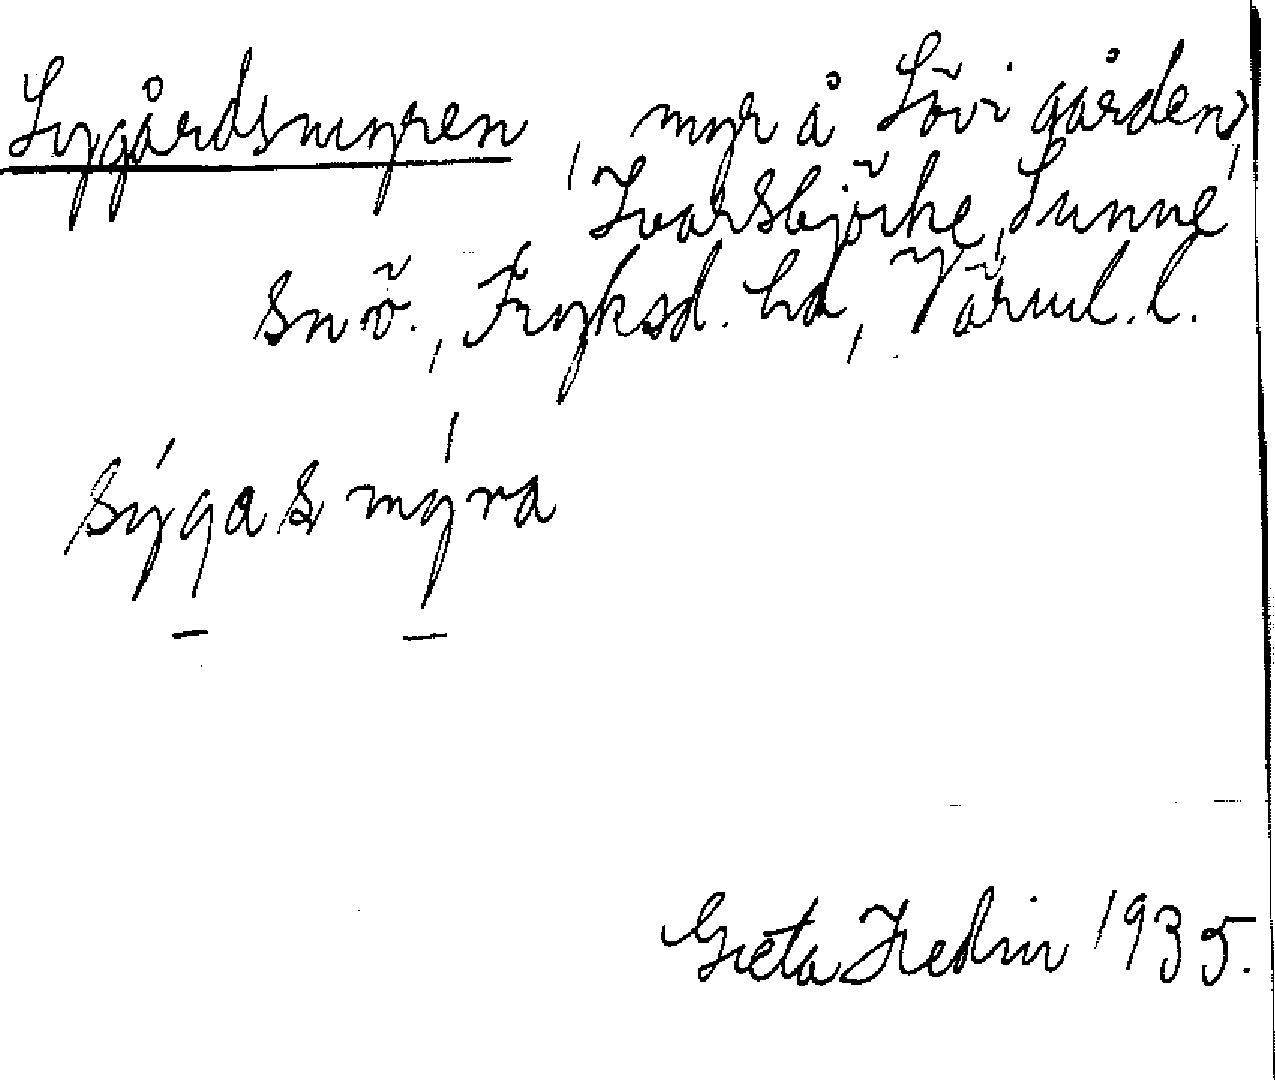 Sygårdsmyren, myr å Lövi gården,
Ivarsbjörke, Sunne
sn ö., Fryksd. hd, Värml. l.
sýgas mýra
Greta Hedin 1935.